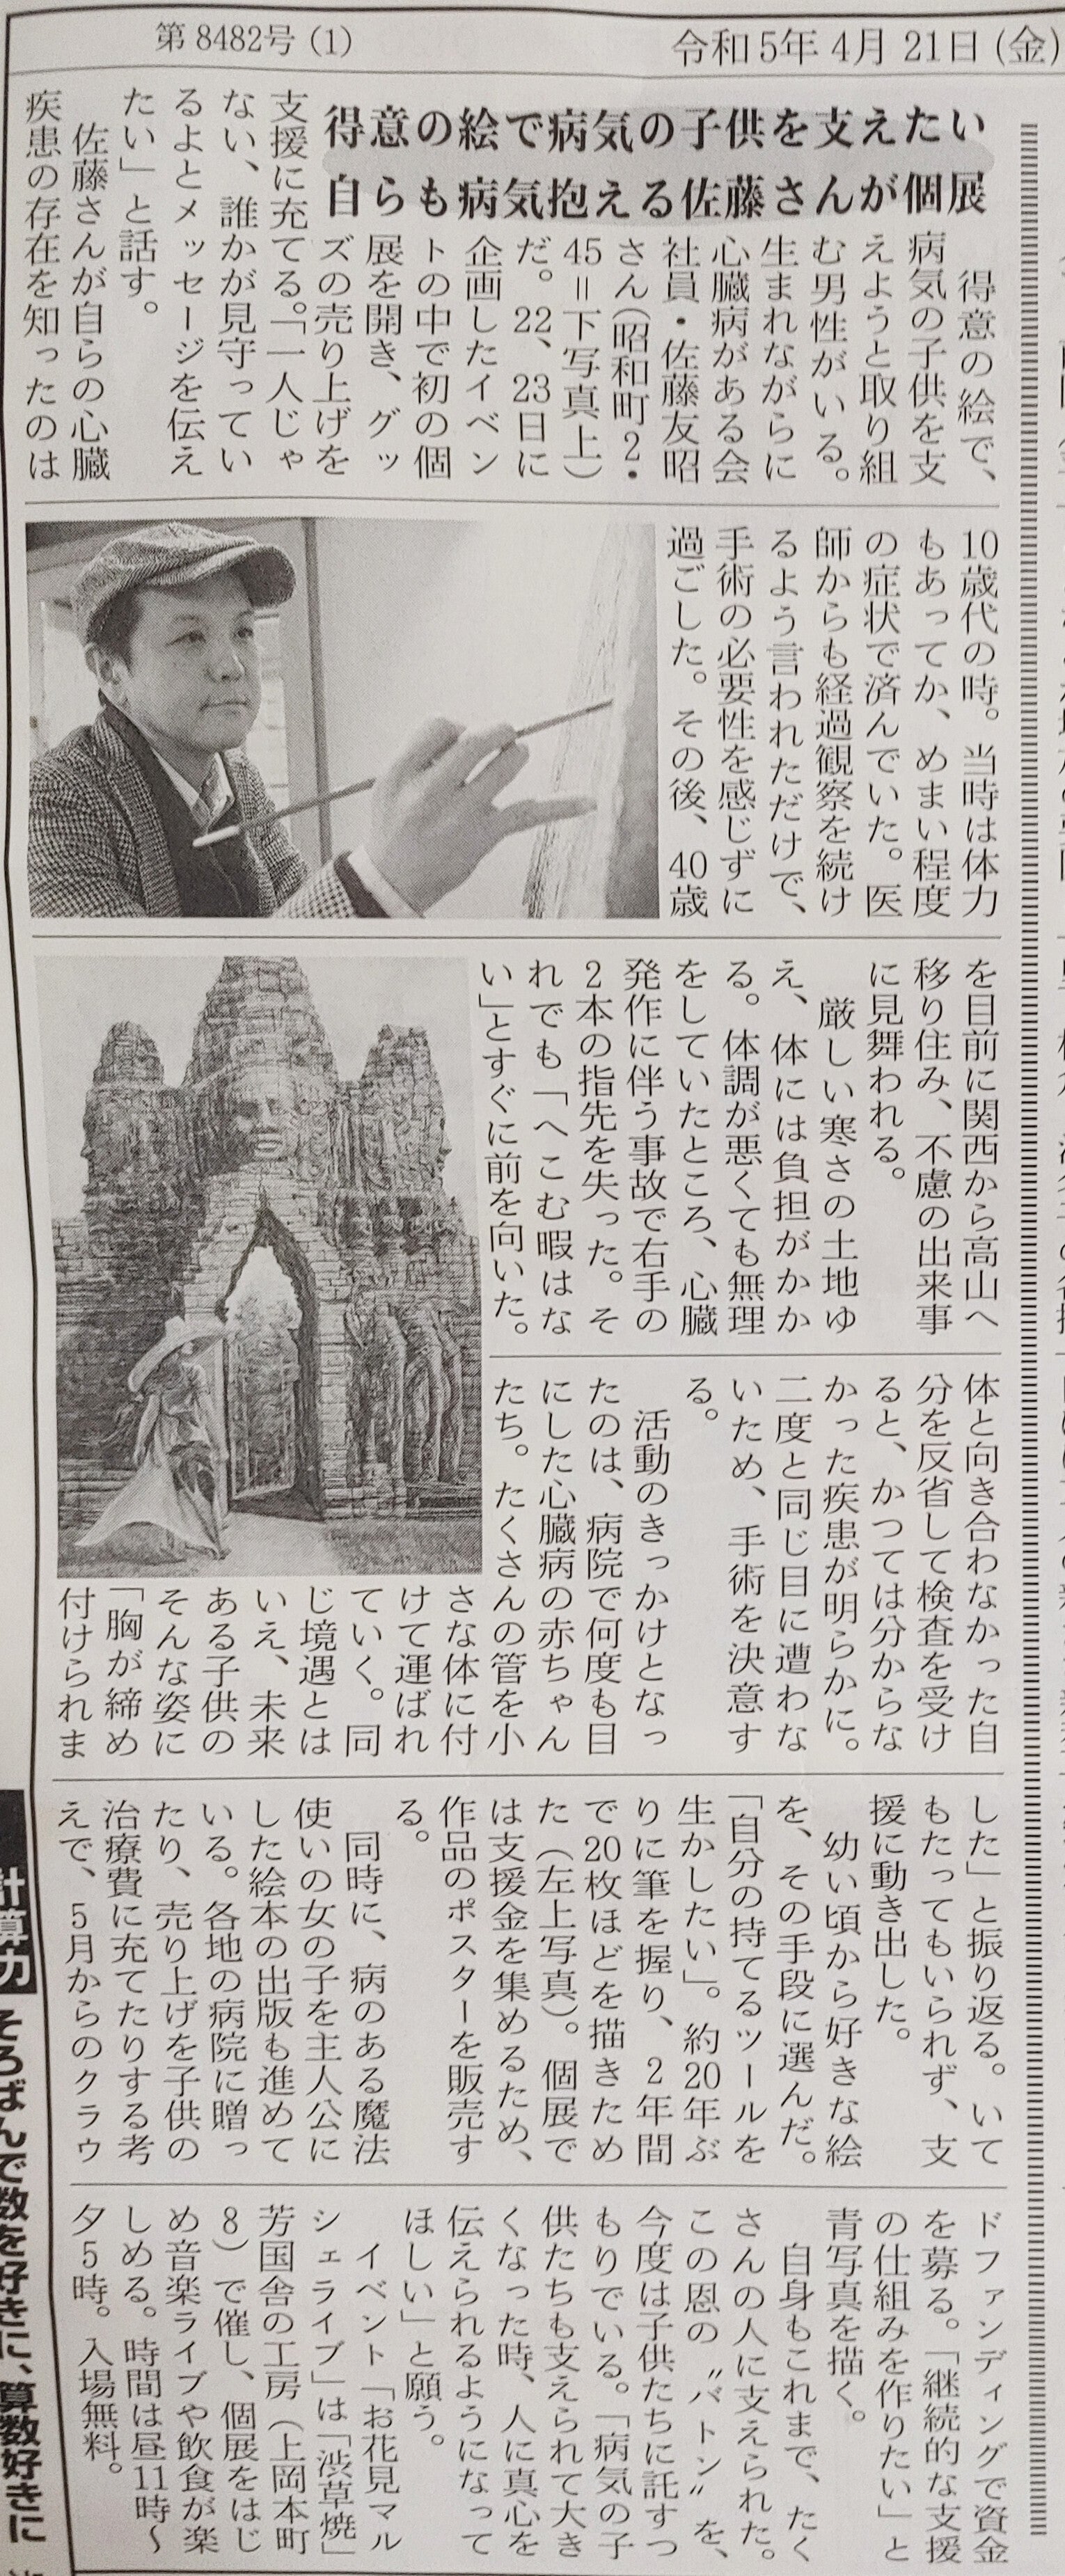 第8482号(1)
令和5年4月21日(金)
得意の絵で病気の子供を支えたい
自らも病気抱える佐藤さんが個展
得意の絵で、
病気の子供を支
えようと取り組
む男性がいる。
生まれながらに
心臓病がある会
社員・佐藤友昭
さん(昭和町2・
45=下写真上)
だ。22、23日に
企画したイベン
トの中で初の個
展を開き、グッ
ズの売り上げを
支援に充てる。「一人じゃ
ない、誰かが見守ってい
るよとメッセージを伝え
たい」と話す。
佐藤さんが自らの心臓
疾患の存在を知ったのは
10歳代の時。当時は体力
もあってか、めまい程度
の症状で済んでいた。医
師からも経過観察を続け
るよう言われただけで、
手術の必要性を感じずに
過ごした。その後、40歳
を目前に関西から高山へ
移り住み、不慮の出来事
に見舞われる。
厳しい寒さの土地ゆ
え、体には負担がかか
る。体調が悪くても無理
をしていたところ、心臓
発作に伴う事故で右手の
2本の指先を失った。そ
れでも「へこむ暇はな
い」とすぐに前を向いた。
体と向き合わなかった自
分を反省して検査を受け
ると、かつては分からな
かった疾患が明らかに。
二度と同じ目に遭わな
いため、手術を決意す
る。
活動のきっかけとなっ
たのは、病院で何度も目
にした心臓病の赤ちゃん
たち。たくさんの管を小
さな体に付
けて運ばれ
ていく。同
じ境遇とは
いえ、未来
ある子供の
そんな姿に
「胸が締め
付けられま
した」と振り返る。いて
もたってもいられず、支
援に動き出した。
幼い頃から好きな絵
を、その手段に選んだ。
「自分の持てるツールを
生かしたい」。約20年ぶ
りに筆を握り、2年間
で20枚ほどを描きため
た(左上写真)。個展で
は支援金を集めるため、
作品のポスターを販売す
る。
同時に、病のある魔法
使いの女の子を主人公に
した絵本の出版も進めて
いる。各地の病院に贈っ
たり、売り上げを子供の
治療費に充てたりする考
えで、5月からのクラウ
ドファンディングで資金
を募る。「継続的な支援
の仕組みを作りたい」と
青写真を描く。
自身もこれまで、たく
さんの人に支えられた。
この恩の〝バトン〟を、
今度は子供たちに託すつ
もりでいる。「病気の子
供たちも支えられて大き
くなった時、人に真心を
伝えられるようになって
ほしい」と願う。
イベント「お花見マル
シェライブ」は「渋草焼」
芳国舎の工房(上岡本町
8)で催し、個展をはじ
め音楽ライブや飲食が楽
しめる。時間は昼11時〜
夕5時。入場無料。
計算力
そろばんで数を好きに、算数好きに